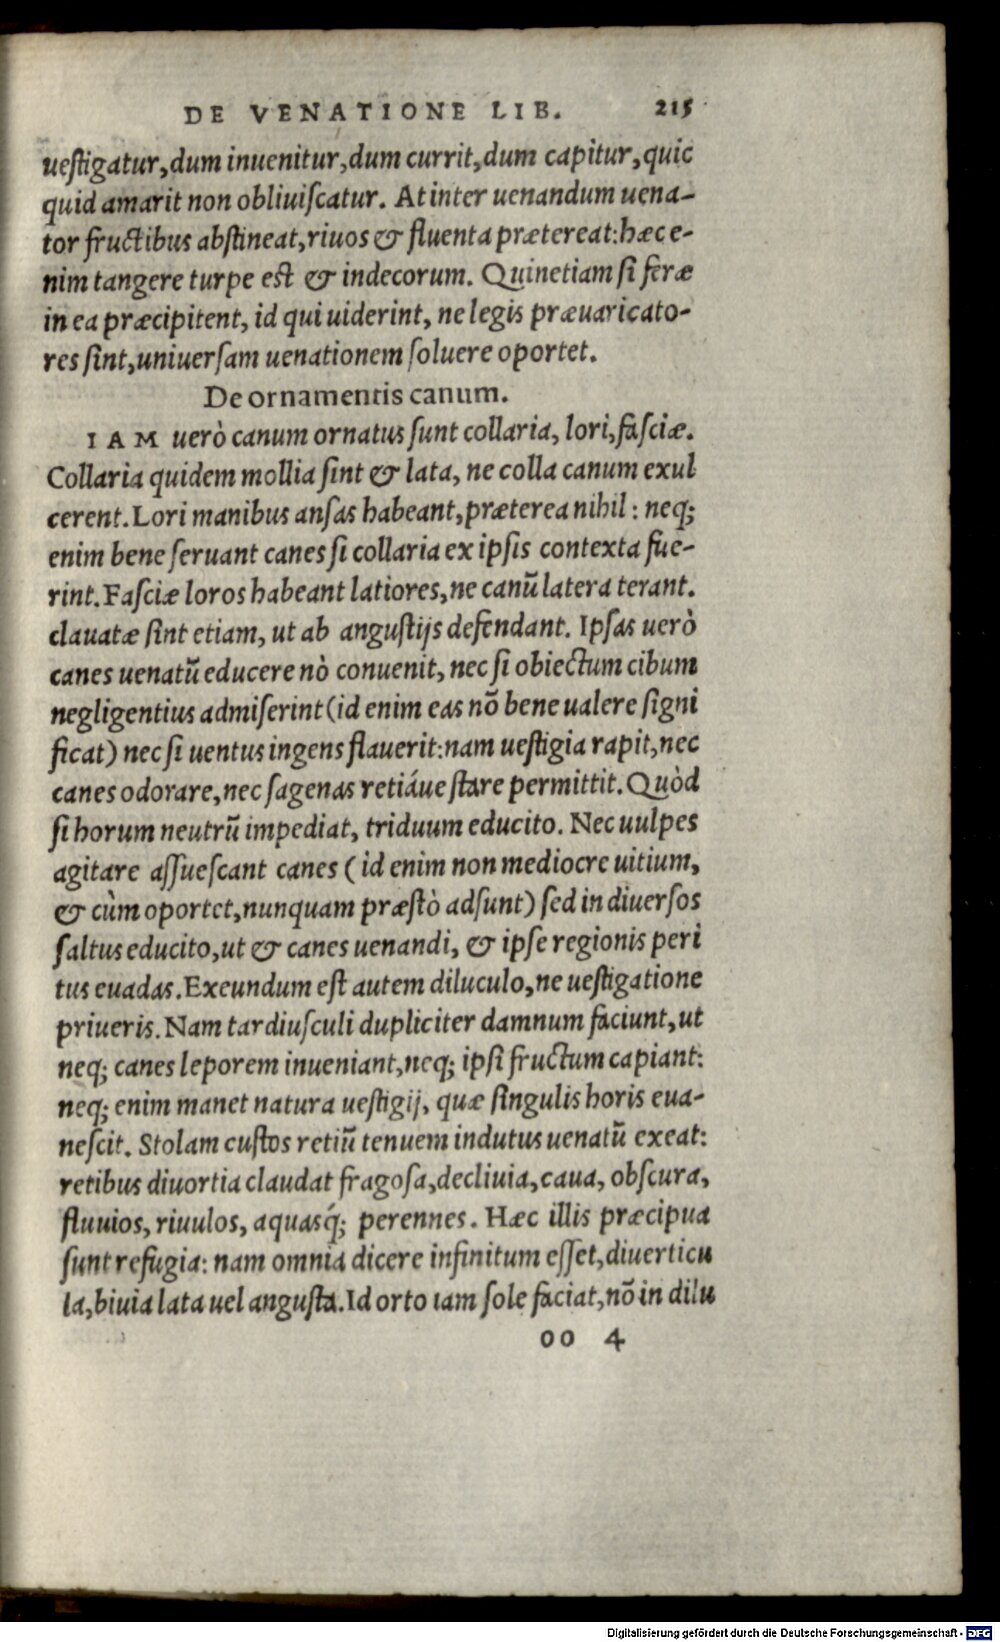 DE VENATIONE LIB. 215
uestigatur, dum inuenitur, dum currit, dum capitur, quic
quid amarit non obliuiscatur. At inter uenandum uena-
tor fructibus abstineat, riuos & fluenta prætereat: hæc e-
nim tangere turpe est & indecorum. Quinetiam si feræ
in ea præcipitent, id qui uiderint, ne legis præuaricato-
res sint, uniuersam uenationem soluere oportet.
De ornamentis canum.
IAM uerò canum ornatus sunt collaria, lori, fasciæ.
Collaria quidem mollia sint & lata, ne colla canum exul
cerent. Lori manibus ansas habeant, præterea nihil: neq;
enim bene seruant canes si collaria ex ipsis contexta fue-
rint. Fasciæ loros habeant latiores, ne canũ latera terant.
clauatæ sint etiam, ut ab angustijs defendant. Ipsas uerò
canes uenatũ educere nò conuenit, nec si obiectum cibum
negligentius admiserint (id enim eas nõ bene ualere signi
ficat) nec si uentus ingens flauerit: nam uestigia rapit, nec
canes odorare, nec sagenas retiáue stare permittit. Quòd
si horum neutrũ impediat, triduum educito. Nec uulpes
agitare assuescant canes (id enim non mediocre uitium,
& cùm oportet, nunquam præstò adsunt) sed in diuersos
saltus educito, ut & canes uenandi, & ipse regionis peri
tus euadas. Exeundum est autem diluculo, ne uestigatione
priueris. Nam tardiusculi dupliciter damnum faciunt, ut
neq; canes leporem inueniant, neq; ipsi fructum capiant:
neq; enim manet natura uestigij, quæ singulis horis eua-
nescit. Stolam custos retiũ tenuem indutus uenatũ exeat:
retibus diuortia claudat fragosa, decliuia, caua, obscura,
fluuios, riuulos, aquasq́; perennes. Hæc illis præcipua
sunt refugia: nam omnia dicere infinitum esset, diuerticu
la, biuia lata uel angusta. Id orto iam sole faciat, nõ in dilu
oo 4
Digitalisierung gefördert durch die Deutsche Forschungsgemeinschaft - DFG